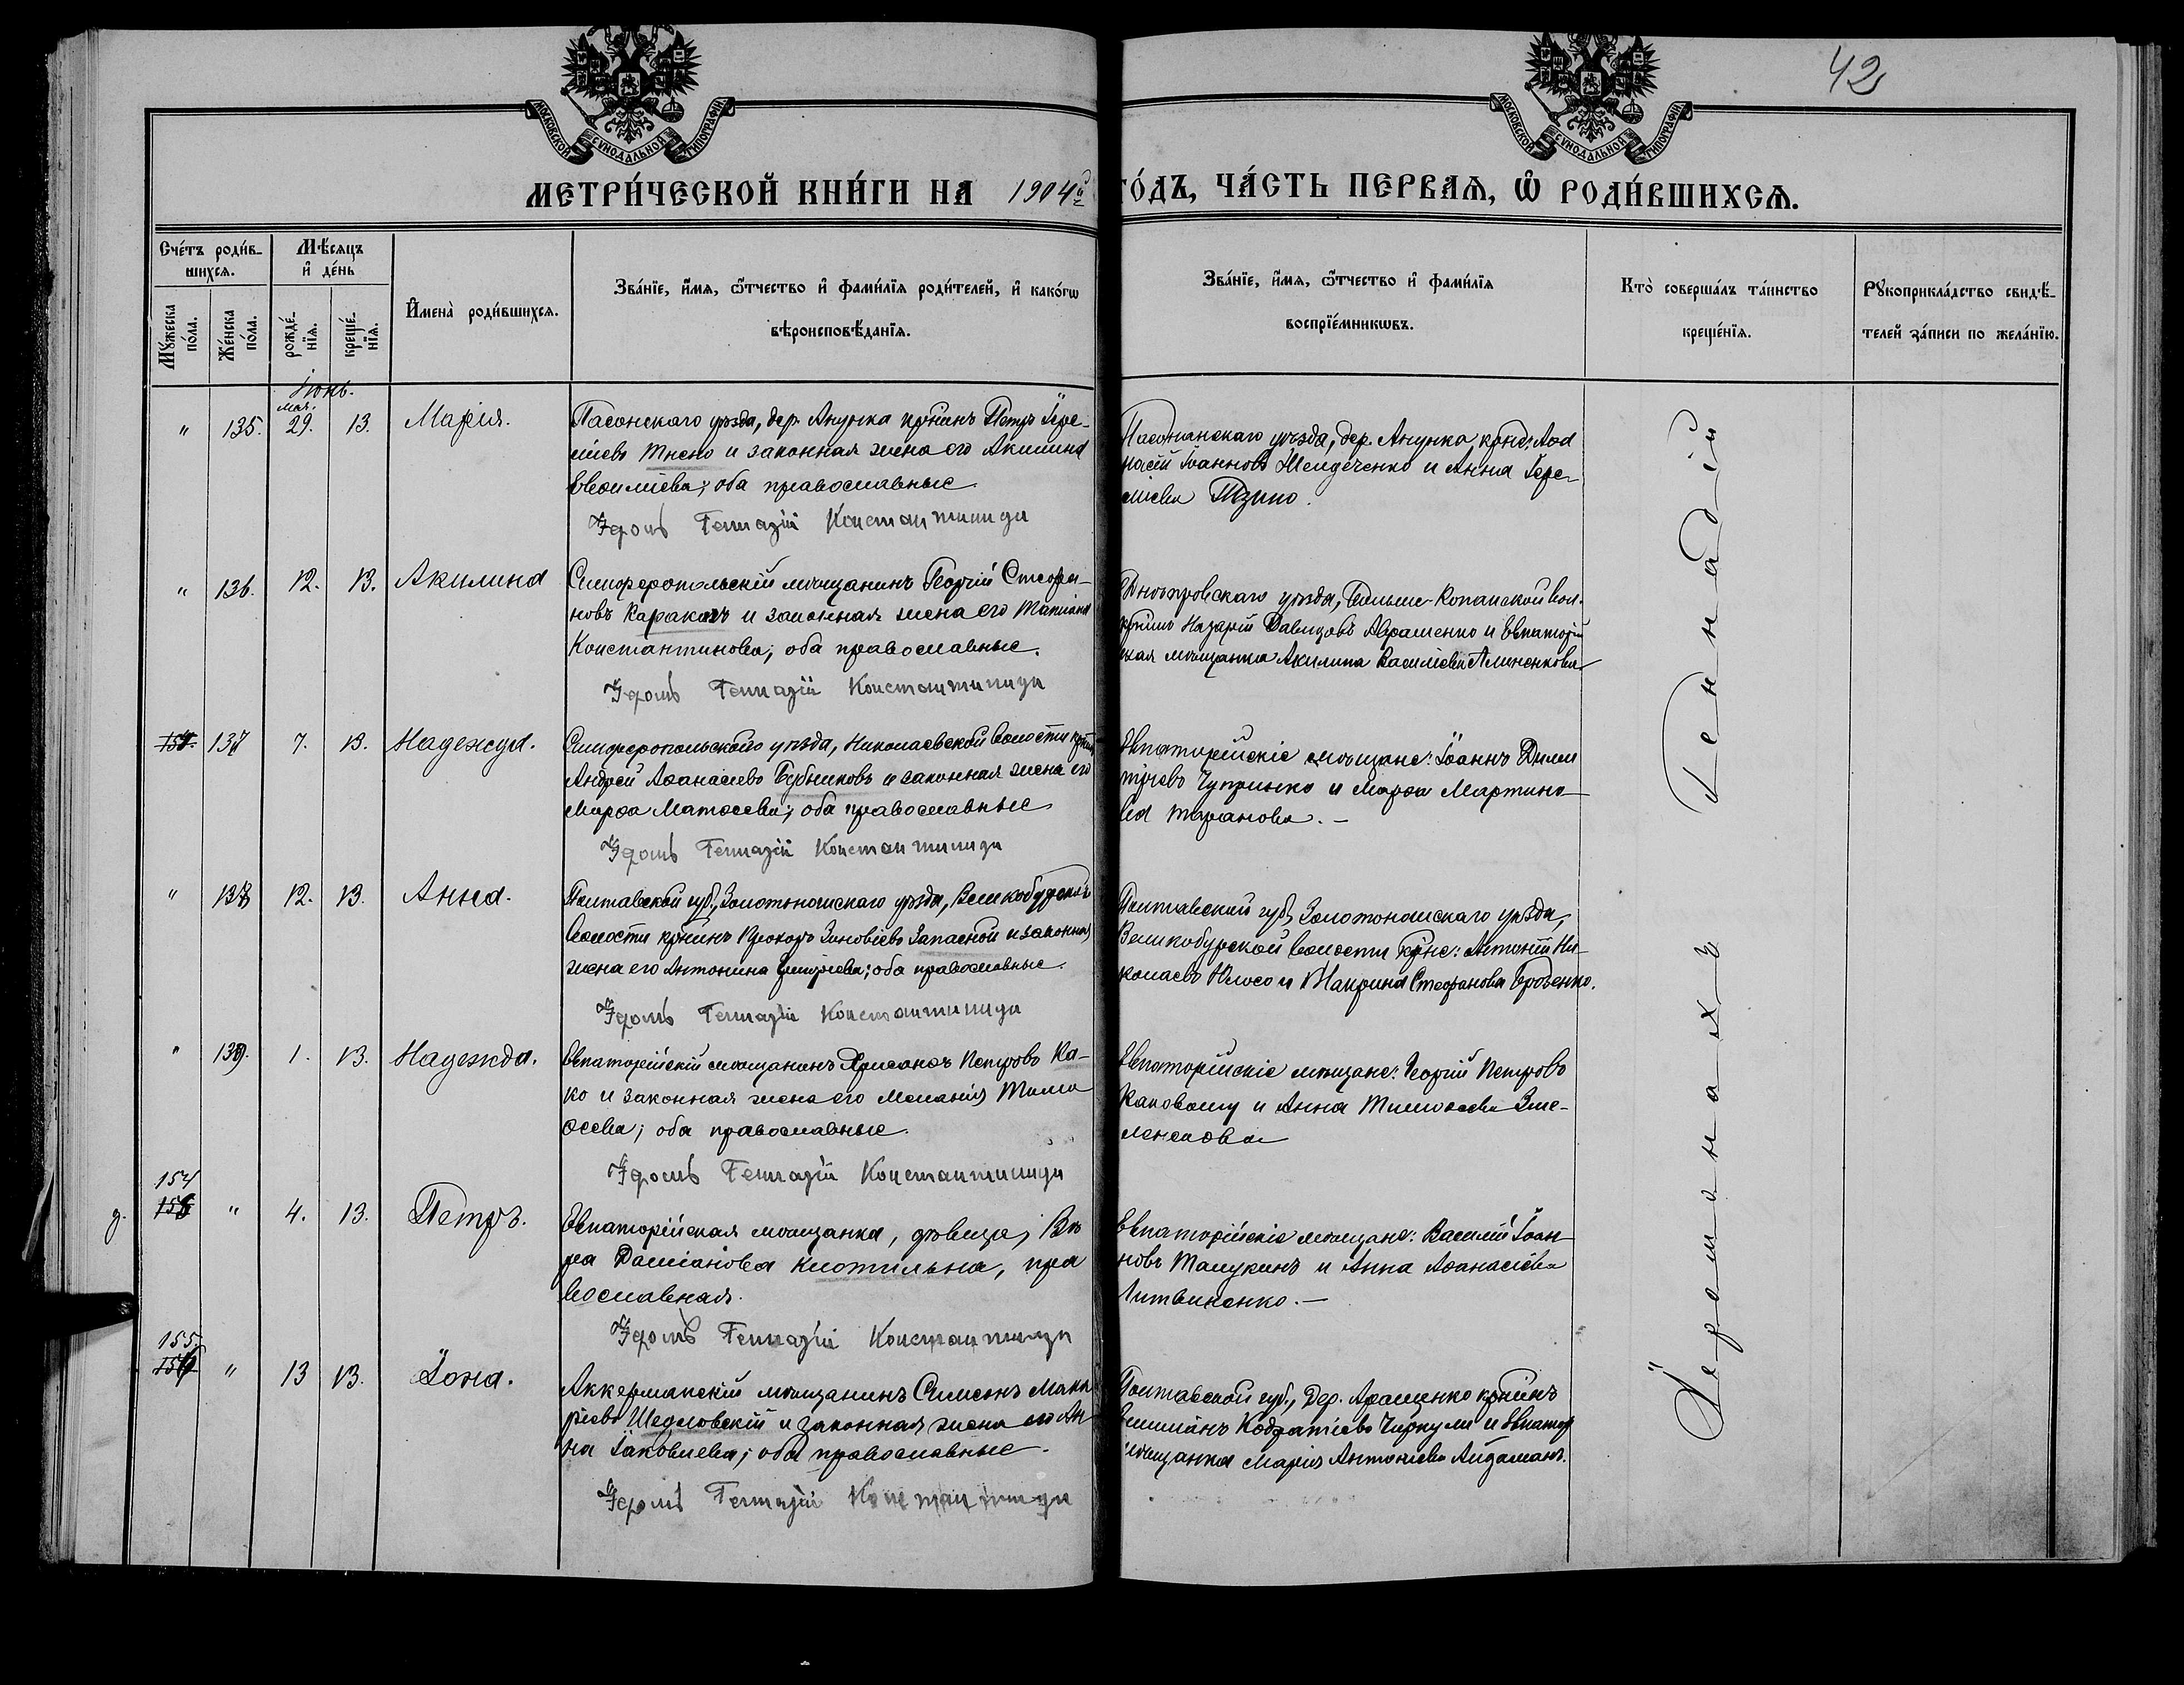 42
МОСКОВСКОЙ СѴНОДАЛЬНОЙ ТИПОГРАФІИ
МОСКОВСКОЙ СѴНОДАЛЬНОЙ ТИПОГРАФІИ
МЕТРИ́ЧЕСКОЙ КНИ́ГИ НА 1904й ГО́ДЪ, ЧА́СТЬ ПЕРВАѦ, Ѡ҆ РОДИ́ВШИХСѦ.
Сче́тъ роди́в-
шихсѧ.
Мѣ́сѧцъ
и҆ де́нь
Мꙋ́жеска
по́ла.
Же́нска
по́ла.
рожде́-
нїѧ.
креще́-
нїѧ.
И҆мена̀ роди́вшихсѧ.
Зва́нїе, и҆́мѧ, ѻ҆́тчество и҆ фами́лїѧ роди́телей, и҆ како́гѡ
вѣроисповѣ́данїѧ.
Зва́нїе, и҆́мѧ, ѻ҆́тчество и҆ фами́лїѧ
воспрїе́мникѡвъ.
Кто̀ соверша́лъ та́инство
креще́нїѧ.
Рꙋкоприкла́дство свидѣ́-
телей за́писи по жела́нїю.
Іюнь.
мая.
" 135. 29. 13. Марія.
уѣзда, дер. Анунка Петръ Іере-
міевъ и законная жена его Акилина
Евсиліева; оба православные
Іером Геннадій Константиниди
уѣзда, дер. Анунка
насій Іоанновъ и Анна Іере-
міева
" 136. 12. 13. Акилина
Симферопольскій мѣщанинъ Георгій Стефа-
новъ и законная жена его Татіана
Константинова; оба православные.
Іером Геннадій Константиниди
Днѣпровскаго уѣзда, Больше-Копанской вол.
Назарій Давидовъ Авраменко и Евпаторій
ская мѣщанка Акилина Василіева
137 7. 13. Надежда.
Симферопольскаго уѣзда, Николаевской волости
Андрей Аѳанасіевъ Бубниковъ и законная жена его
Марѳа Матѳеева; оба православные
Іером Геннадій Константиниди
Евпаторійскіе мѣщане: Іоаннъ Дими
тріевъ Чупринко и Марѳа Мартино-
ва Таранова. —
" 138 12. 13. Анна.
Полтавской губ., Золотоношскаго уѣзда, Великобурской
волости Прохоръ Зиновіевъ Запасной и законная
жена его Антонина Григоріева; оба православные.
Іером Геннадій Константиниди
Полтавской губ, Золотоношскаго уѣзда,
Великобурской волости Антоній Ни-
колаевъ и Макрина Стефанова Бровенко.
" 139. 1. 13. Надежда.
Евпаторійскій мѣщанинъ Хрисанѳъ Петровъ Ка-
ко и законная жена его Меланія Тимо
ѳеева; оба православные.
Іером Геннадій Константиниди
Евпаторійскіе мѣщане: Георгій Петровъ
и Анна Тимоѳеева
154
" 4. 13. Петръ.
Евпаторійская мѣщанка, дѣвица, Вѣ
ра Даміанова Кнотильна, пра
вославная.
Іером Геннадій Константиниди
Евпаторійскіе мѣщане: Василій Іоан-
новъ Талукинъ и Анна Аѳанасіева
Литвиненко. —
155
" 13 13. Іона.
Аккерманскій мѣщанинъ Симеонъ Мака
ріевъ Шедловскій и законная жена его Ан
на Іаковлева; оба православные.
Іером Геннадій Константиниди
Полтавской губ., дер.
Емиліанъ Кодратіевъ Чиркули и Евпатор
мѣщанка Марія Антоніева Айдаманъ.
Іеромонахъ Геннадій